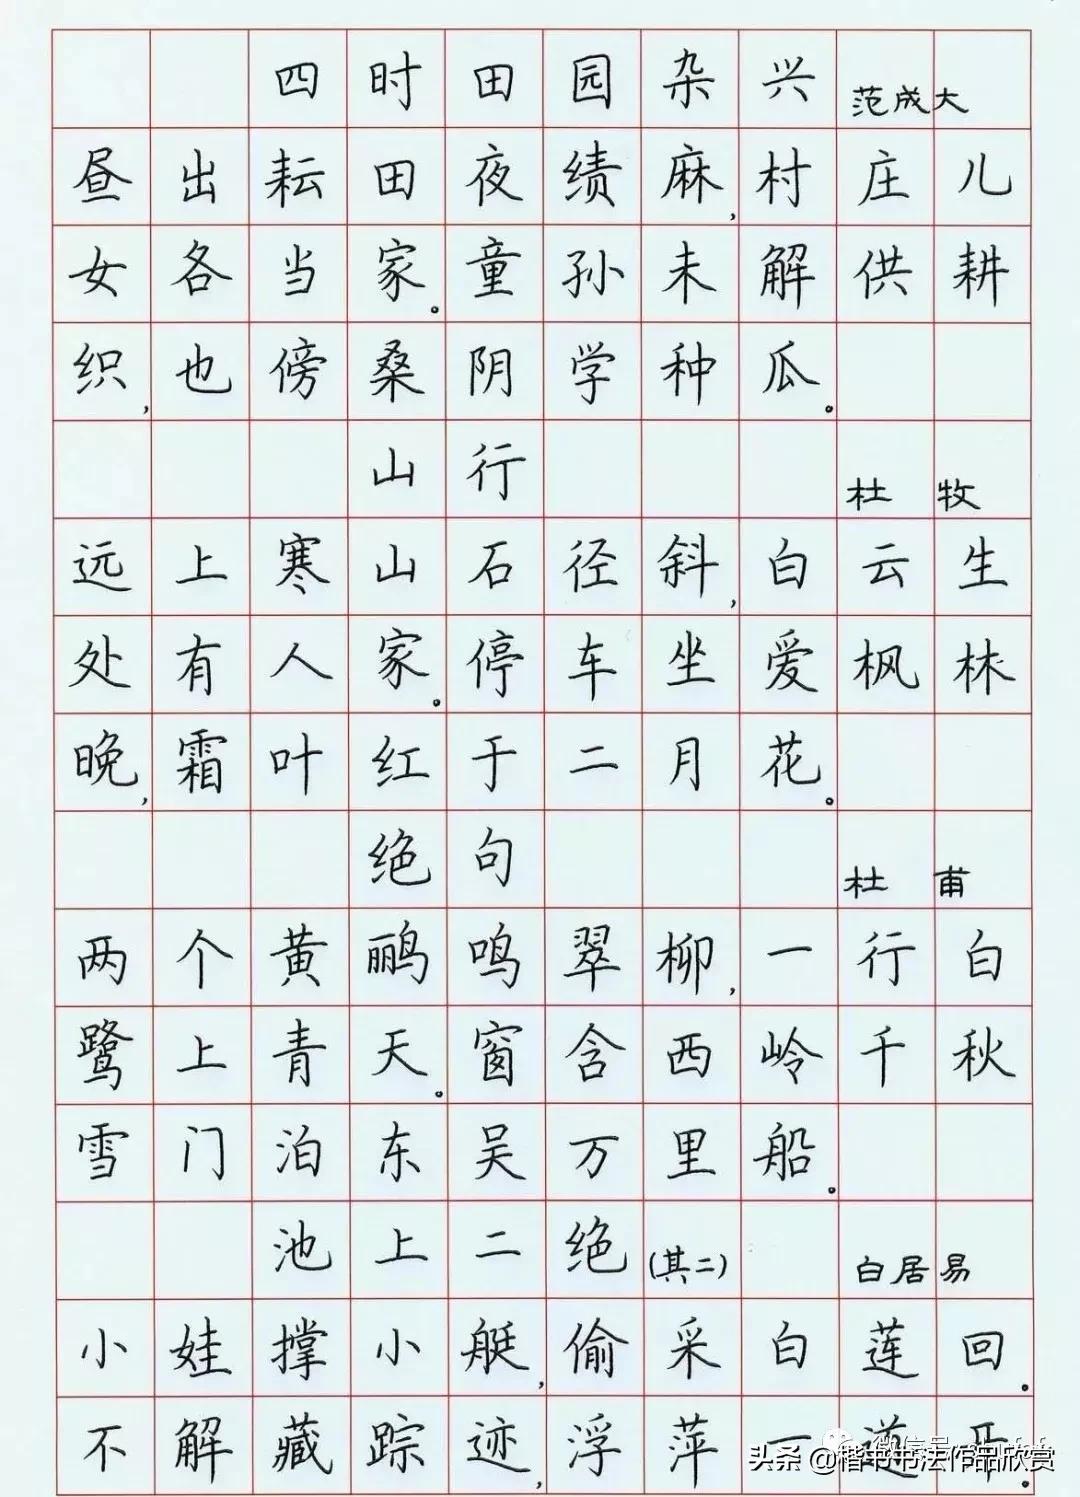 四时田园杂兴 范成大
昼出耘田夜绩麻,村庄儿
女各当家。童孙未解供耕
织,也傍桑阴学种瓜。
山行 杜牧
远上寒山石径斜,白云生
处有人家。停车坐爱枫林
晚,霜叶红于二月花。
绝句 杜甫
两个黄鹂鸣翠柳,一行白
鹭上青天。窗含西岭千秋
雪门泊东吴万里船。
池上二绝(其二) 白居易
小娃撑小艇,偷采白莲回。
不解藏踪迹,浮萍一道开。
头条@楷书书法作品欣赏